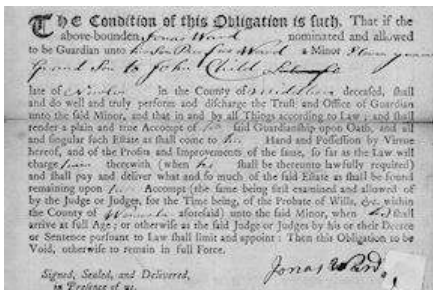 THE Condition of this Obligation is such, That if the
above-bounden Jonas Ward nominated and allowed
to be Guardian unto his Son Ward a Minor
Grand Son to John Child
late of In the County of Middlesex deceased, shall
and do well and truly perform and discharge the Trust and Office of Guardian
unto the said Minor, and that in and by all Things according to Law; and shall
render a plain and true Accompt of his said Guardianship upon Oath, and all
and singular such Estate as shall come to his Hand and Possession by Virtue
hereof, and of the Profits and Improvements of the same, so far as the Law will
charge him therewith (when he shall be thereunto lawfully required)
and shall pay and deliver what and so much of the said Estate as shall be found
remaining upon his Accompt (the same being first examined and allowed of
by the Judge or Judges, for the Time being, of the Probate of Wills, &c. within
the County of aforesaid) unto the said Minor, when shall
arrive at full Age; or otherwise as the said Judge or Judges by his or their Decree
or Sentence pursuant to Law shall limit and appoint: Then this Obligation to be
Void, otherwise to remain in full Force.
Jonas Ward
Signed, Sealed, and Delivered,
in Presence of us.